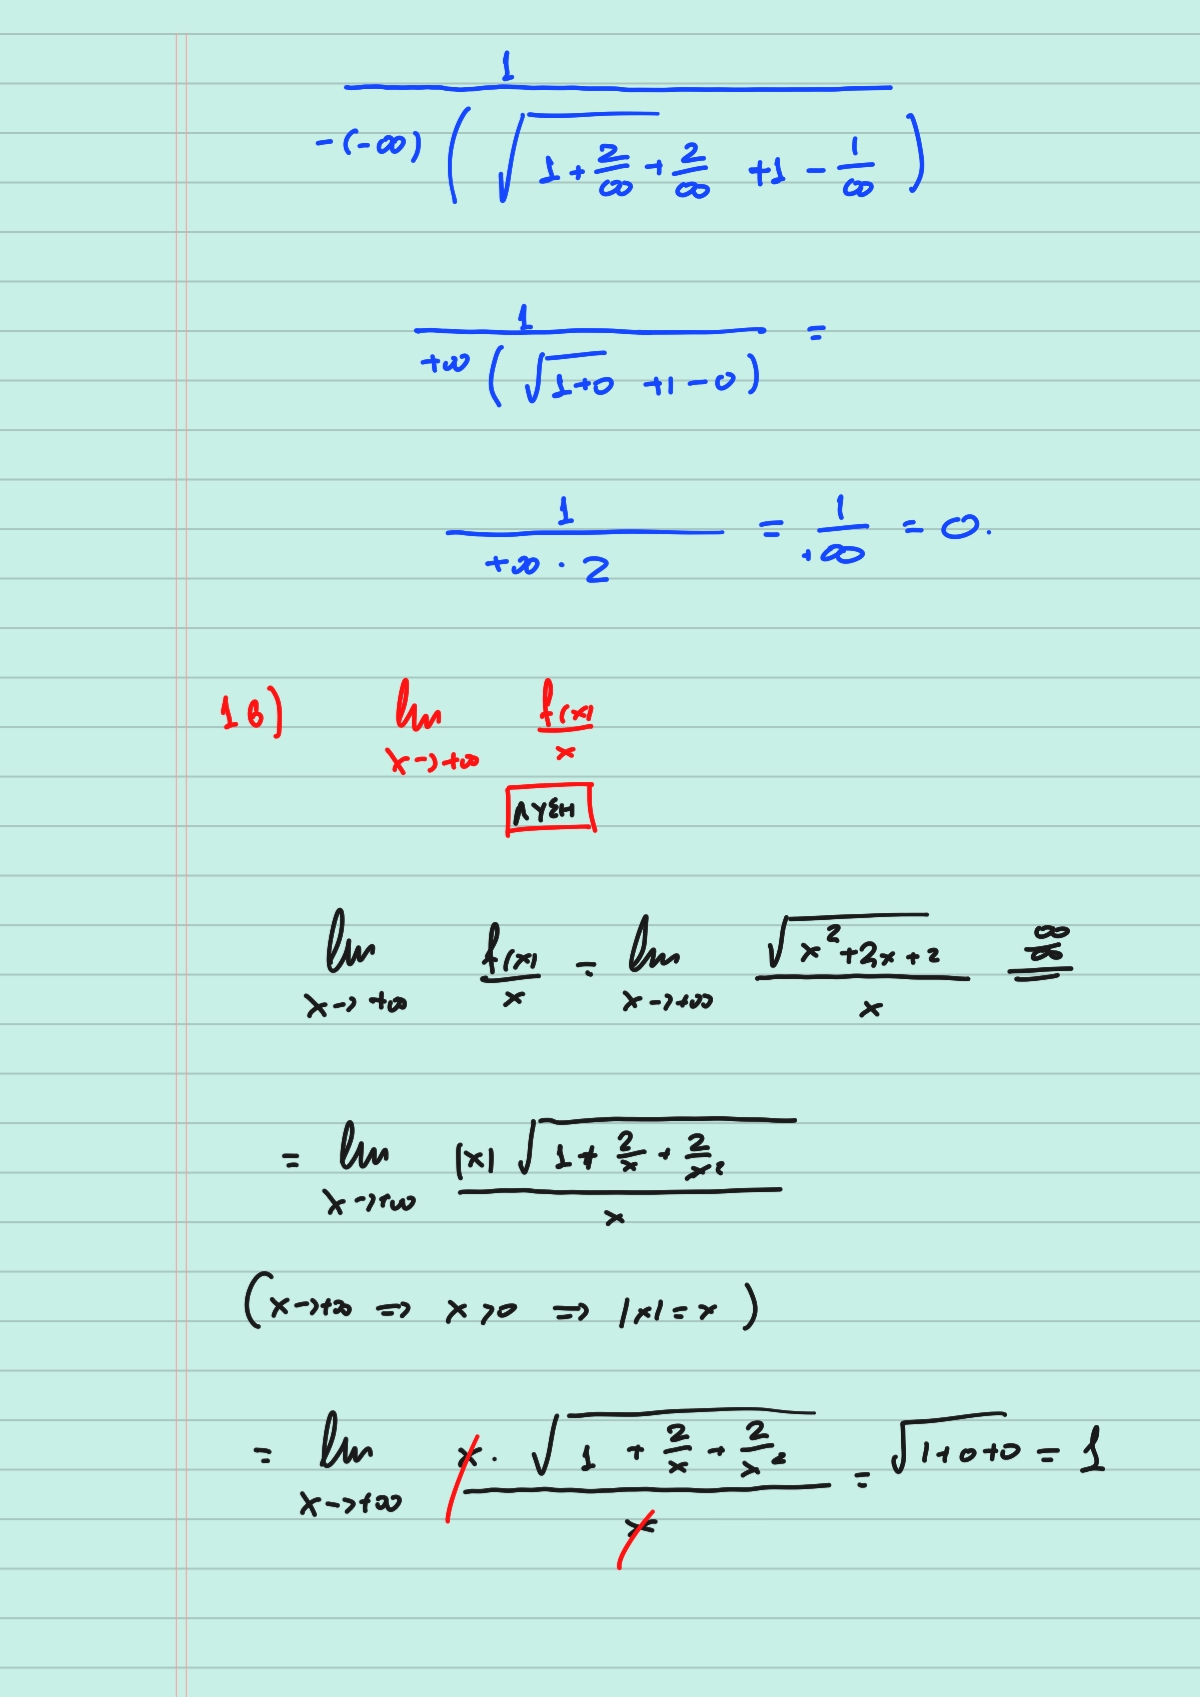 1
-(-∞) ( √ 1 + 2/∞ + 2/∞ + 1 - 1/∞ )
1
+∞ ( √ 1+0 +1 - 0 ) =
1
+∞ · 2 = 1/+∞ = 0.
1β) lim x→+∞ f(x)/x
ΛΥΣΗ
lim x→+∞ f(x)/x = lim x→+∞ √ x²+2x+2 / x ∞/∞ =
= lim x→+∞ |x| √ 1 + 2/x + 2/x² / x
( x→+∞ ⇒ x>0 ⇒ |x| = x )
= lim x→+∞ x · √ 1 + 2/x + 2/x² / x = √ 1+0+0 = 1